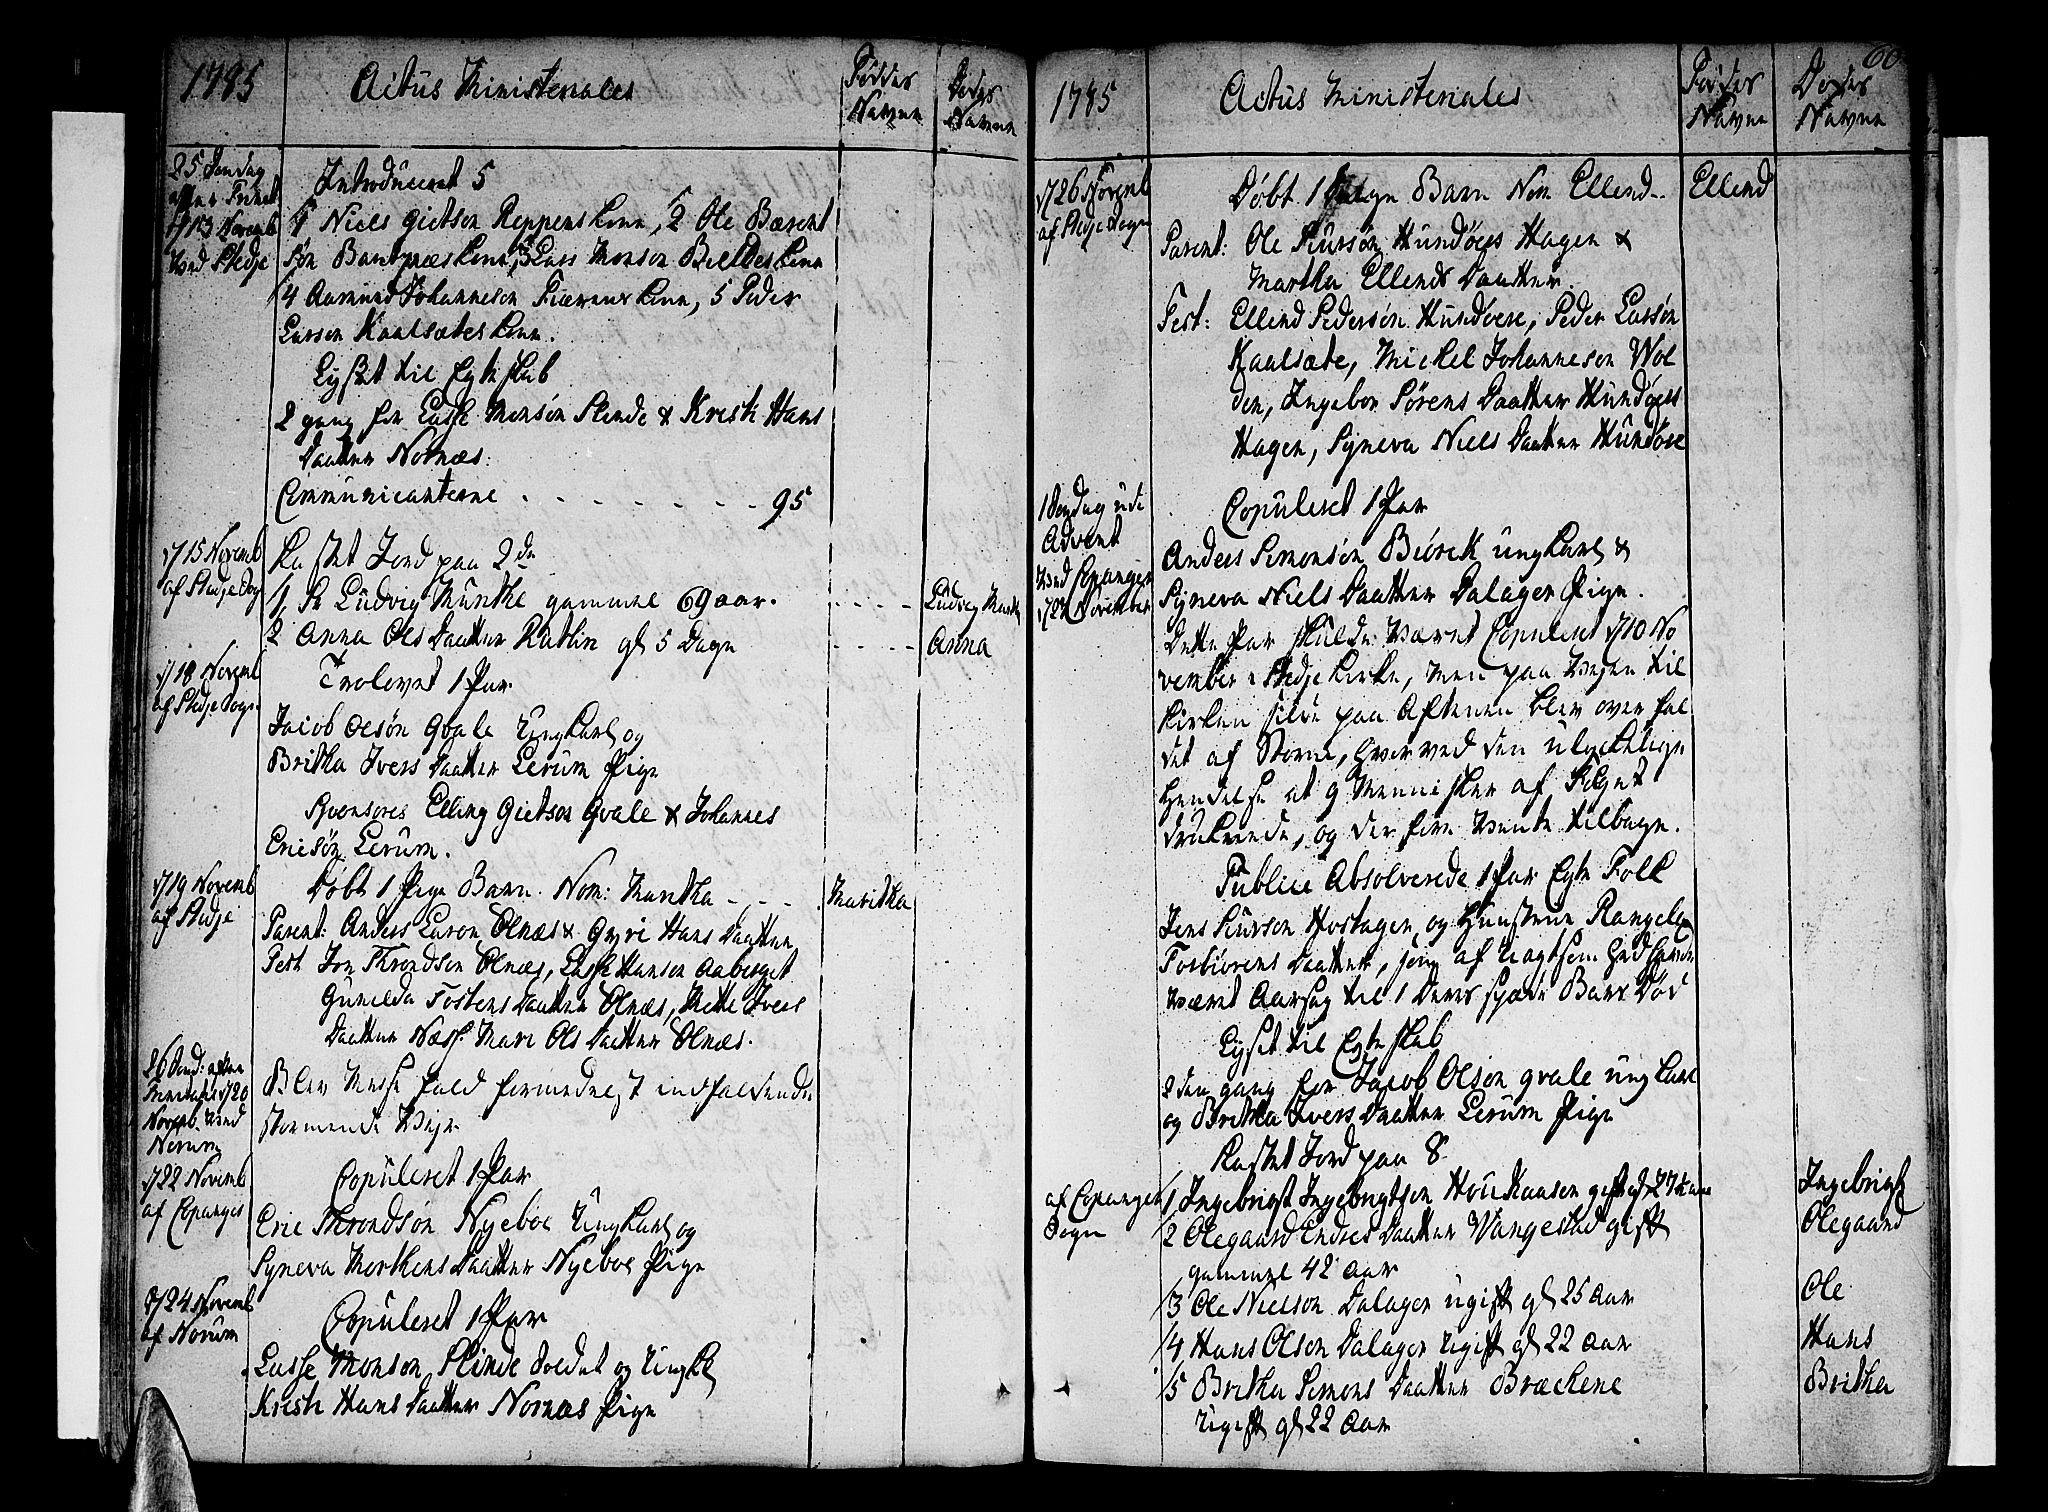 1785
Actus Ministeriales
Føddes Navne
Dødes Navne
25 Søndag
efter Trinit:
d/13 Novemb
ved Stedje
Introduceret 5
1 Niels Gietson Reppens Kone, 2 Ole Bærent
søn Bangnæs Kone, 3 Lars Monson Bieldes Kone
4 Aamund Johanneson Fiærens Kone, 5 Peder
Larson Kaalsætes Kone.
Lyset til Egteskab
2 gang for Lasse Monsøn Slinde & Kristi Hans
Daatter Nornæs.
Communicanterne . - - - - - - 95
d/15 Novemb
af Stedje Sog
Kastet Jord paa 2de
1, Sr Ludvig Munthe gammel 69 aar. - - - -
Ludvig Munthe
2 Anna Ols Daatter Kutlin gl 5 Dage - - - -
Anna
d/18 Novemb
af Stedje Sogn
Trolovet 1 Par.
Jacob Olsøn Qvale Ungkarl og
Britha Ivers Daatter Lerum Pige
Sponsores Elling Gietson Qvale & Johannes
Ericsøn Lerum.
d/19 Novemb
af Stedje
Døbt 1 Pige Barn. Nom: Maritha - - -
Maritha
Parent: Anders Larson Olnæs & Gyri Hans Daatter
Test Jon Throndson Olnæs, Lasse Hanson Aaberget
Gunilda Tostens Daatter Olnæs, Mette Ivers
Daatter Næss. Mari Ols Daatter Olnæs.
26 Sond: efter
Trinitatis d/20
Novemb. ved
Norum
Blev Messe fald formedelst indfaldende
stormende Vejr.
d/22 Novemb
af Copanger
Copuleret 1 Par
Eric Throndsøn Nyeboe Ungkarl og
Syneva Morthens Daatter Nyeboe Pige
d/24 Novemb
af Norum
Copuleret 1 Par
Lasse Monson Slinde Soldat og Ungkl
Kristi Hans Daatter Nornæs Pige
60
1785
Actus Ministeriales
Føddes Navne
Dødes Navne
d/26 Novemb
af Stedje Sogn
Døbt 1 Barn Nom Ellend -
Ellend
Parent: Ole Siursøn Hundøes Hagen &
Martha Ellends Daatter.
Test: Ellend Pedersøn Hundøere, Peder Larsøn
Kaalsæte, Mickel Johanneson Wol
den, Ingebor Sørens Daatter Hundøes
Hagen, Syneva Niels Daatter Hundøre
1 Søndag udi
Advent
ved Copanger
d/27 November
Copuleret 1 Par
Anders Simonsøn Biörck ungkarl &
Syneva Niels Daatter Dalager Pige.
Dette Par skulde været Copuleret d/10 No
vember i Stedje Kirke, men paa Vejen til
Kirken silde paa Aftenen blev over fal
det af Storm, hvorved den ulyckelige
Hendelse at 9 Mennisker af Følget
druknede, og derfore vendte tilbage.
Publice Absolverede 1 Par Egte Folk
Jens Siurson Hostagen, og Hustrue Rangela
Torbiörens Daatter, som af Uagtsomhed havde
været Aarsag til 1 Deres spæde Barns Død
Lyset til Egteskab
2den gang for Jacob Olson Qvale ungkarl
og Britha Ivers Daatter Lerum Pige
Kastet Jord paa 8
af Copanger
Sogn
1 Ingebrigt Ingebrigtson Houkaasen gift gl 27½ aar
Ingebrigt
2 Olegaard Endres Daatter Wangestad gift
gammel 42 aar
Olegaard
3 Ole Nielson Dalager ugift gl 25 Aar
Ole
4 Hans Olson Dalager Ugift gl 22 aar
Hans
5 Britha Simons Daatter Bræckene
Ugift gl 22 Aar
Britha